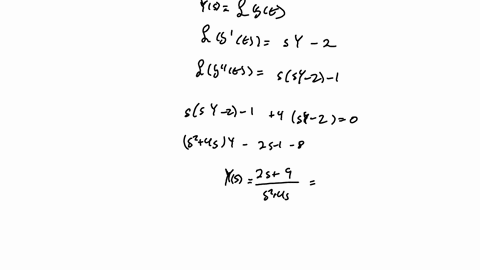 Y(s) = ℒ y(t)
ℒ(y'(t)) = sY - 2
ℒ(y''(t)) = s(sY-2)-1
s(sY-2)-1 +4(sY-2)=0
(s²+4s)Y - 2s-1-8
Y(s) = (2s+9)/(s²+4s) =